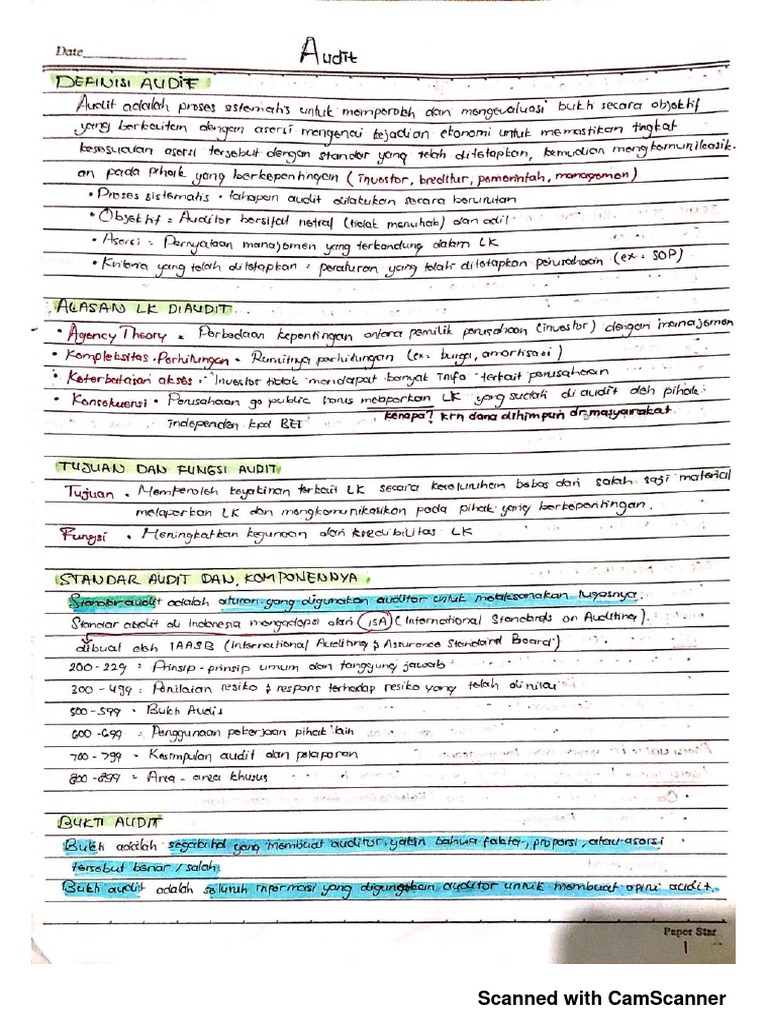 Date
Audit
DEFINISI AUDIT
Audit adalah proses sistematis untuk memperoleh dan mengevaluasi bukti secara objektif
yang berkaitan dengan asersi mengenai kejadian ekonomi untuk memastikan tingkat
kesesuaian asersi tersebut dengan standar yang telah ditetapkan, kemudian mengkomunikasik-
an pada pihak yang berkepentingan (investor, kreditur, pemerintah, manajemen)
• Proses sistematis = tahapan audit dilakukan secara berurutan
• Objektif = Auditor bersifat netral (tidak memihak) dan adil
• Asersi = Pernyataan manajemen yang terkandung dalam LK
• Kriteria yang telah ditetapkan = peraturan yang telah ditetapkan perusahaan (ex = SOP)
ALASAN LK DIAUDIT
• Agency Theory = Perbedaan kepentingan antara pemilik perusahaan (investor) dengan manajemen
• Kompleksitas Perhitungan = Rumitnya perhitungan (ex. bunga, amortisasi)
• Keterbatasan akses = Investor tidak mendapat banyak info terkait perusahaan
• Konsekuensi = Perusahaan go public harus melaporkan LK yang sudah di audit oleh pihak
independen kpd BEI
kenapa? krn dana dihimpun dr masyarakat
TUJUAN DAN FUNGSI AUDIT
Tujuan = Memperoleh keyakinan terkait LK secara keseluruhan bebas dari salah saji material
melaporkan LK dan mengkomunikasikan pada pihak yang berkepentingan.
Fungsi = Meningkatkan kegunaan dan kredibilitas LK
STANDAR AUDIT DAN KOMPONENNYA
Standar audit adalah aturan yang digunakan auditor untuk melaksanakan tugasnya.
Standar audit di Indonesia mengadopsi dari ISA (International Standards on Auditing).
dibuat oleh IAASB (International Auditing & Assurance Standard Board)
200 - 229 = Prinsip - prinsip umum dan tanggung jawab
300 - 499 = Penilaian resiko & respons terhadap resiko yang telah dinilai
500 - 599 = Bukti Audit
600 - 699 = Penggunaan pekerjaan pihak lain
700 - 799 = Kesimpulan audit dan pelaporan
800 - 899 = Area - area khusus
BUKTI AUDIT
Bukti adalah segala hal yang membuat auditor yakin bahwa fakta, proporsi, atau asersi
tersebut benar / salah
Bukti audit adalah seluruh informasi yang digunakan auditor untuk membuat opini audit.
Paper Star
1
Scanned with CamScanner